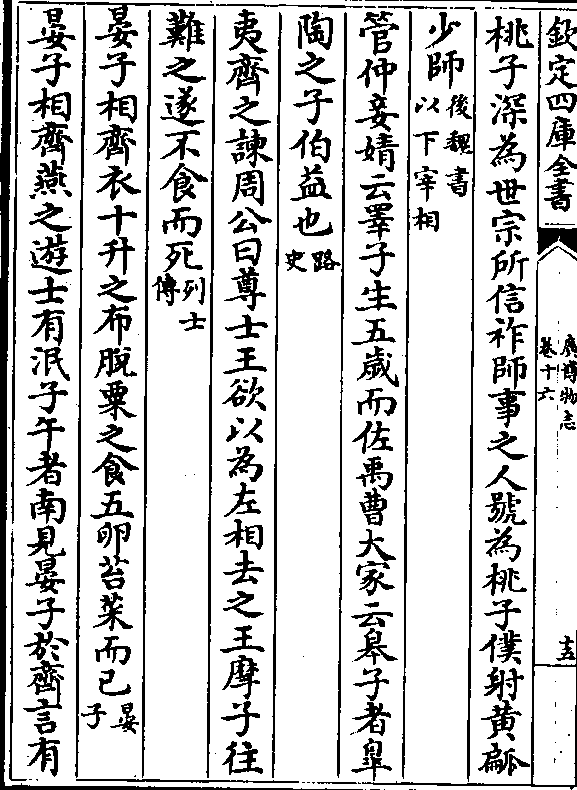 欽定四庫全書
廣博物志
卷十六
十五
桃子深為世宗所信祚師事之人號為桃子僕射黃㼐
少師後魏書
以下宰相
管仲妾婧云睪子生五歲而佐禹曹大家云皋子者皐
陶之子伯益也路
史
夷齊之諫周公曰尊士王欲以為左相去之王摩子往
難之遂不食而死列士
傳
晏子相齊衣十升之布脫粟之食五卵苔菜而已晏
子
晏子相齊燕之遊士有泯子午者南見晏子於齊言有